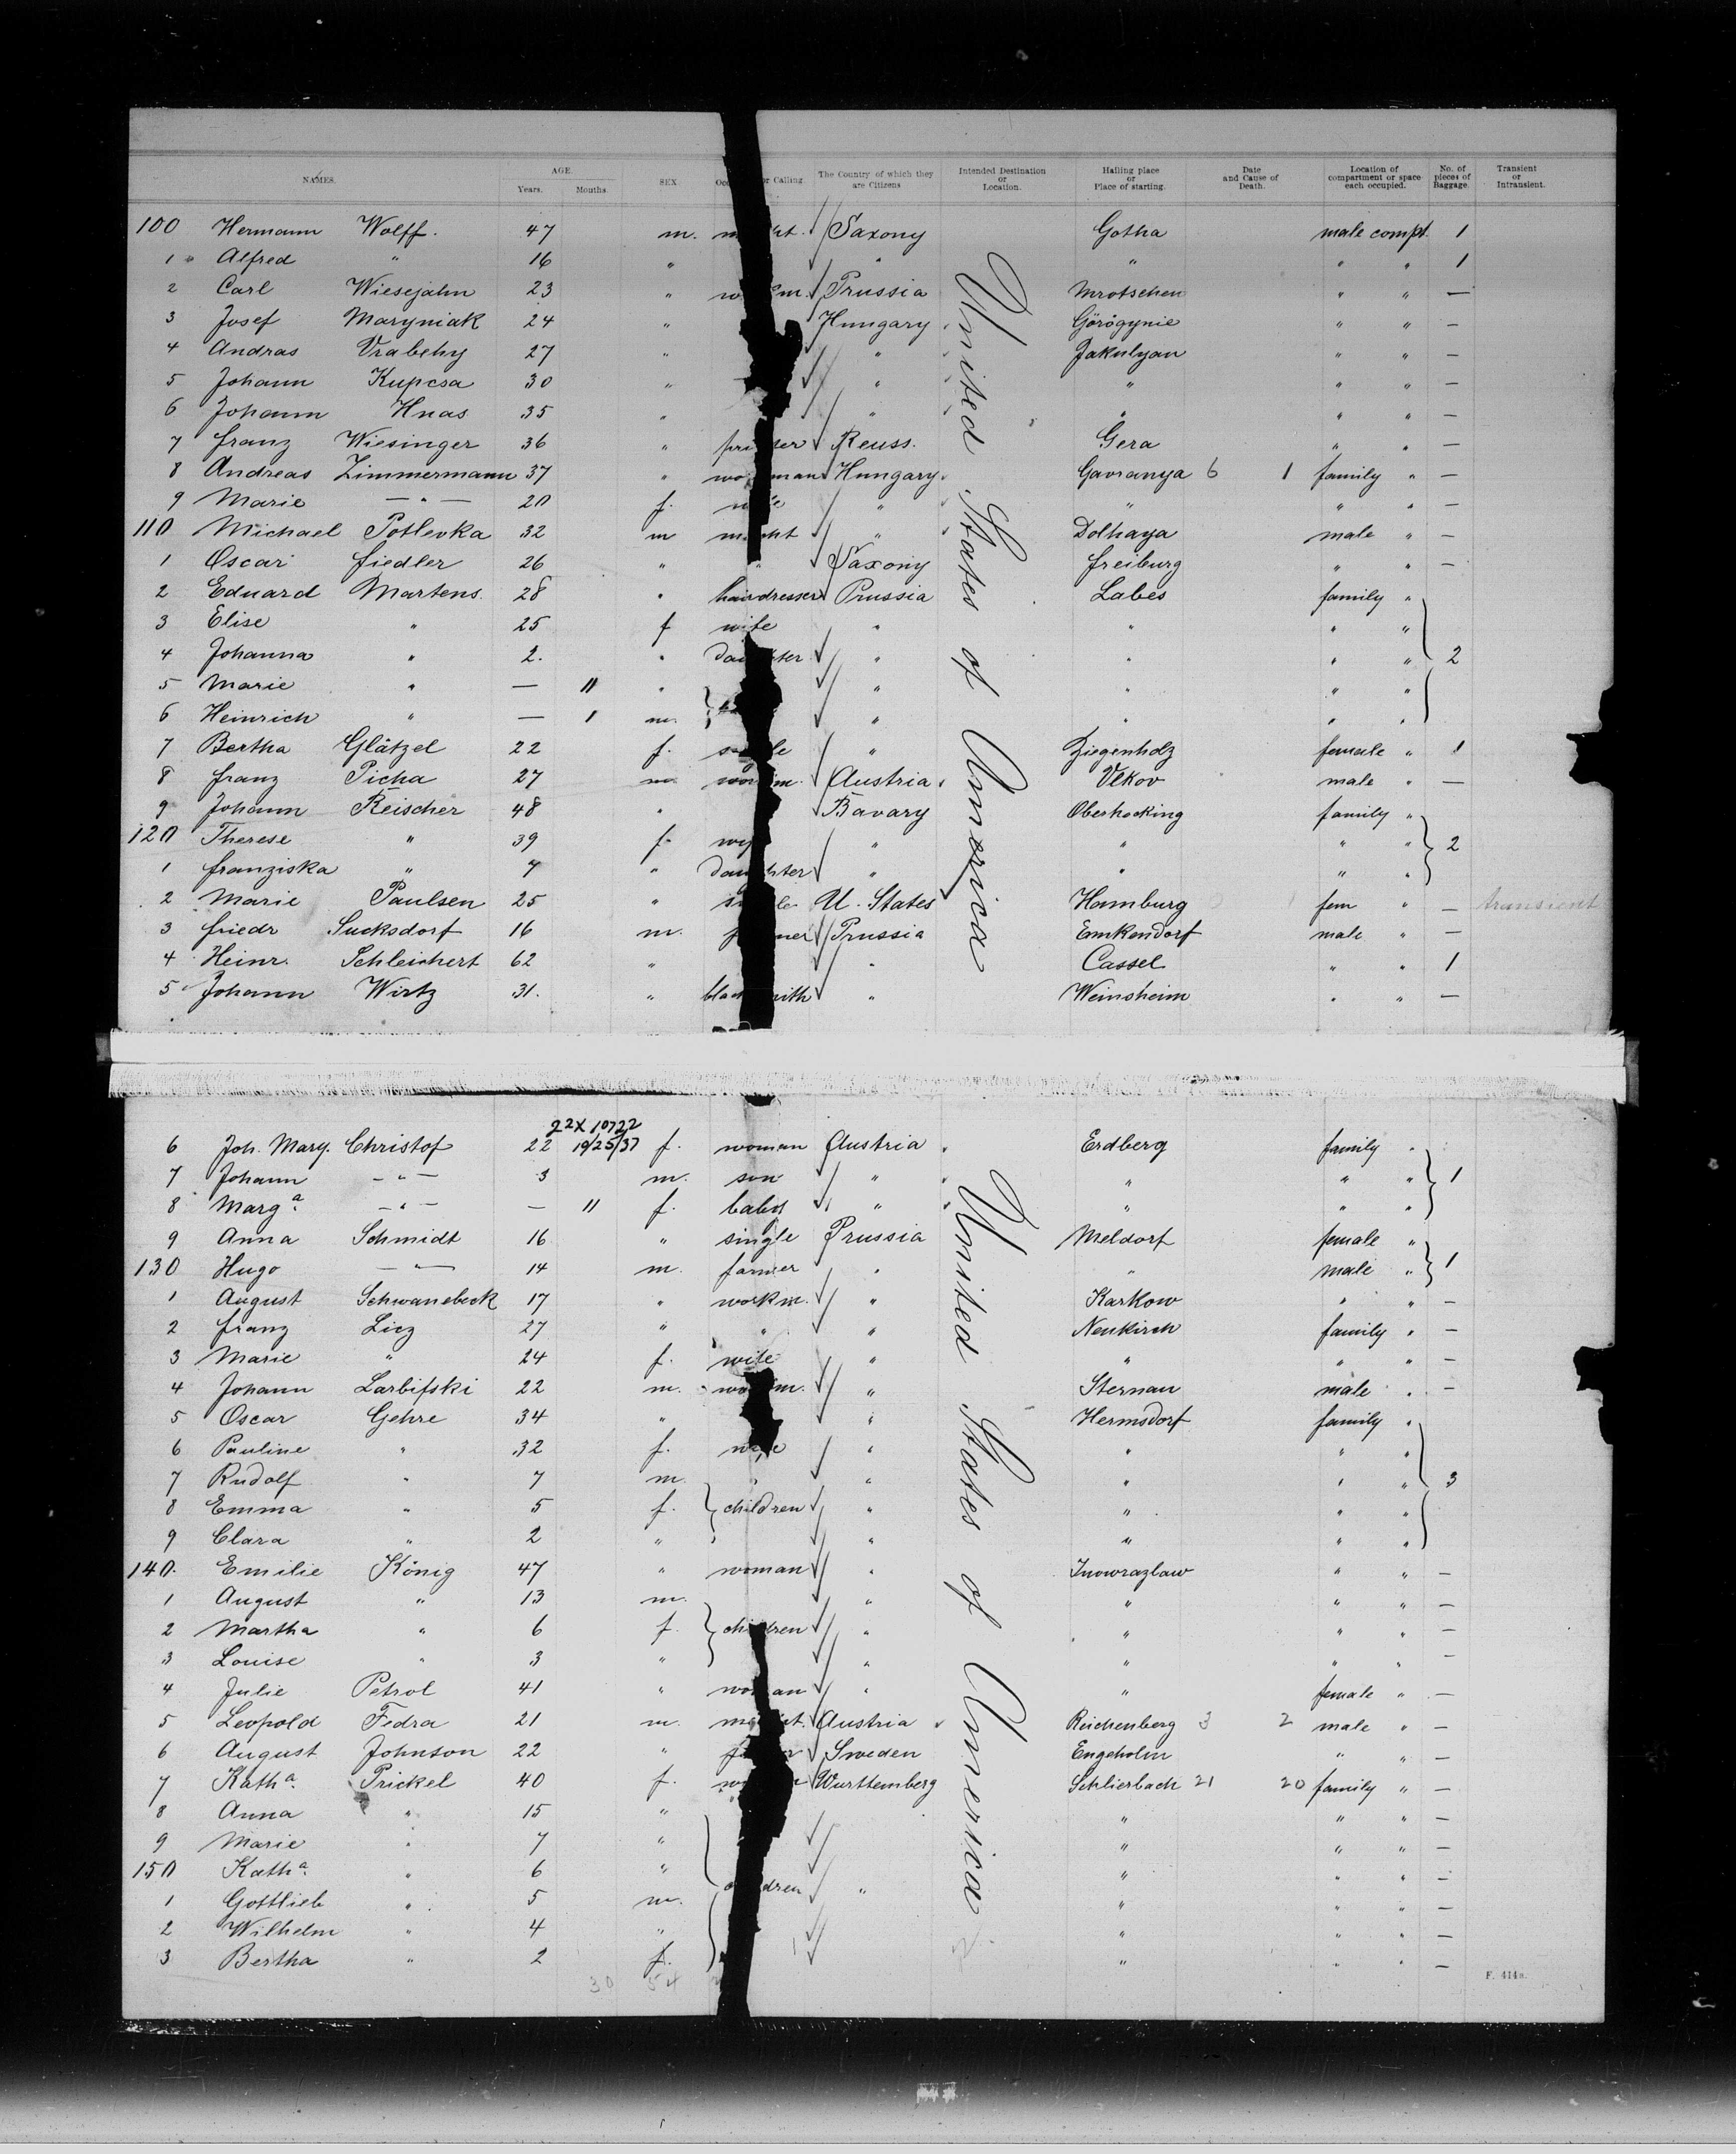 NAMES. AGE. Years. Months. SEX. Occ or Calling. The Country of which they are Citizens Intended Destination or Location. Hailing place or Place of starting. Date and Cause of Death. Location of compartment or space each occupied. No. of pieces of Baggage. Transient or Intransient.
100 Hermann Wolff. 47 m. Saxony Gotha male compt. 1
1 " Alfred " 16 " " " " " 1
2 Carl Wiesejahn 23 " Prussia Mrotschen " " —
3 Josef Maryniak 24 " Hungary Görögynie " " —
4 Andras Vrabehy 27 " " Jakulyan " " —
5 Johann Kupcsa 30 " " " " " —
6 Johann Hnas 35 " " " " " —
7 Franz Wiesinger 36 " Reuss. Gera " " —
8 Andreas Zimmermann 37 " Hungary Gavranya 6 1 family " —
9 Marie — " — 20 f. " " " " —
110 Michael Potlevka 32 m " Dolhaya male " —
1 Oscar Fiedler 26 " " Saxony Freiburg " " —
2 Eduard Martens. 28 " hairdresser Prussia Labes family "
3 Elise " 25 f wife " " " "
4 Johanna " 2. " daughter " " " " 2
5 Marie " — 11 " " " " "
6 Heinrich " — 1 m. " " " "
7 Bertha Glätzel 22 f. single " Ziegenholz female " 1
8 Franz Picha 27 m. workm. Austria Vlkov male " —
9 Johann Reischer 48 " Bavary Oberhocking family "
120 Therese " 39 f. " " " " 2
1 Franziska " 7 " daughter " " " "
2 Marie Paulsen 25 " single U. States Hamburg fem " — transient
3 Friedr Sucksdorf 16 m. Prussia Emkendorf male " —
4 Heinr. Schleichert 62 " " Cassel " " 1
5 Johann Wirtz 31. " blacksmith " Weinsheim " " —
22X10722
6 Joh. Mary. Christof 22 10/25/37 f. woman Austria Erdberg family "
7 Johann — " — 3 m. son " " " " 1
8 Marg.a — " — — 11 f. baby " " " "
9 Anna Schmidt 16 " single Prussia Meldorf female "
130 Hugo — " — 14 m. farmer " " male " 1
1 August Schwanebeck 17 " workm. " Karkow " " —
2 Franz Licz 27 " " " Neukirch family " —
3 Marie " 24 f. wife " " " " —
4 Johann Larbifski 22 m. workm. " Sternau male " —
5 Oscar Gehre 34 " " Hermsdorf family "
6 Pauline " 32 f. wife " " " "
7 Rudolf " 7 m. " " " " 3
8 Emma " 5 f. children " " " "
9 Clara " 2 " " " " "
140. Emilie König 47 " woman " Inowrazlaw " " —
1 August " 13 m. " " " " —
2 Martha " 6 f. children " " " " —
3 Louise " 3 " " " " " —
4 Julie Petrol 41 " woman " " female " —
5 Leopold Fedra 21 m. Austria Reichenberg 3 2 male " —
6 August Johnson 22 " Sweden Engeholm " " —
7 Kath.a Prickel 40 f. Wurttemberg Schlierbach 21 20 family " —
8 Anna " 15 " " " " —
9 Marie " 7 " " " " —
150 Kath.a " 6 " " " " —
1 Gottlieb " 5 m. children " " " " —
2 Wilhelm " 4 " " " " —
3 Bertha " 2 f. " " " —
30 54
United States of America
United States of America
F. 414a.